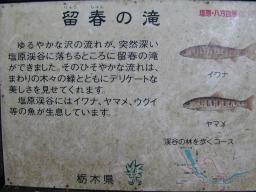 りゅう しゅん
留春の滝
塩原・八方自然
ゆるやかな沢の流れが、突然深い
塩原渓谷に落ちるところに留春の滝
ができました。そのひそやかな流れは、
まわりの木々の緑とともにデリケートな
美しさを見せてくれます。
塩原渓谷にはイワナ、ヤマメ、ウグイ
等の魚が生息しています。
イワナ
ヤマメ
渓谷の林を歩くコース
栃木県